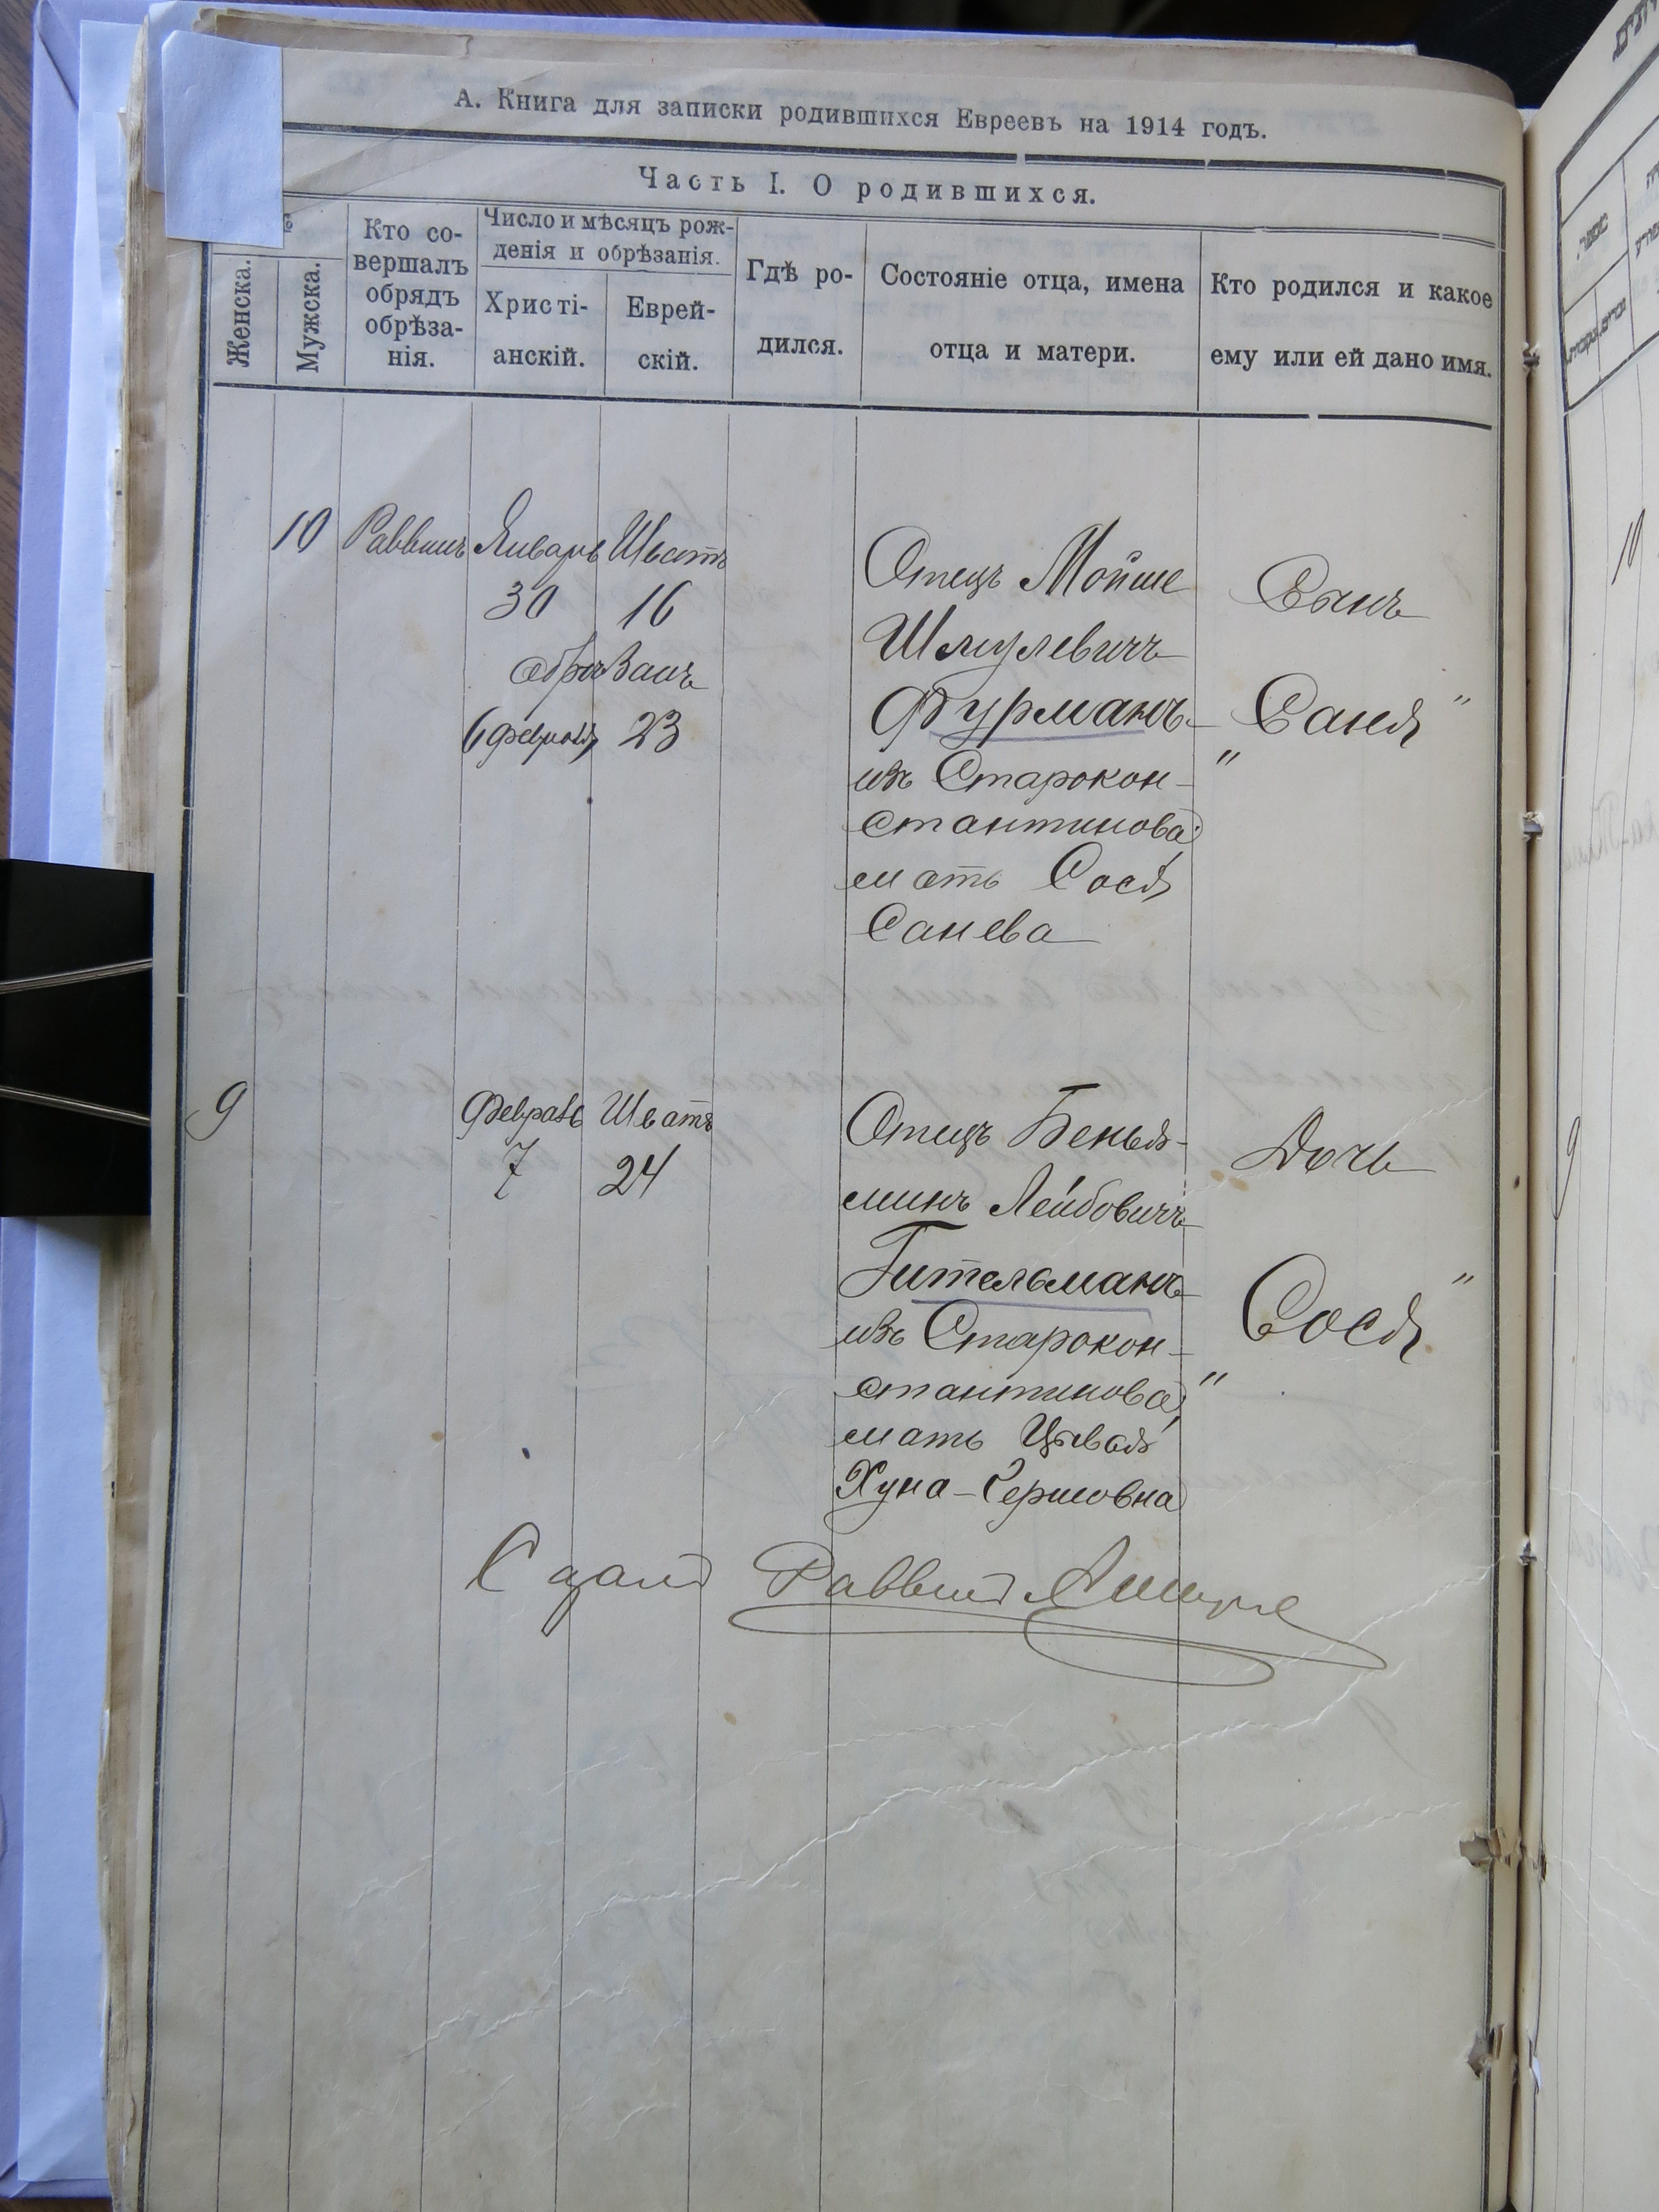 А. Книга для записки родившихся Евреевъ на 1914 годъ.
Часть I. О родившихся.
Женска.
Мужска.
Кто со-
вершалъ
обрядъ
обрѣза-
нія.
Число и мѣсяцъ рож-
денія и обрѣзанія.
Христі-
анскій.
Еврей-
скій.
Гдѣ ро-
дился.
Состояніе отца, имена
отца и матери.
Кто родился и какое
ему или ей дано имя.
10
Раввинъ
Январь
30
Шватъ
16
обрѣзанъ
6 февраля
23
Отецъ Мойше
Шмулевичъ
Фурманъ
изъ Старокон-
стантинова;
мать Сося
Санева
Сынъ
„Саня"
9
Февраль
7
Шватъ
24
Отецъ Бенья-
минъ Лейбовичъ
Гительманъ
изъ Старокон-
стантинова;
мать Цывья
Хуна-Гершовна
Дочь
„Сося"
Раввинъ
10
9